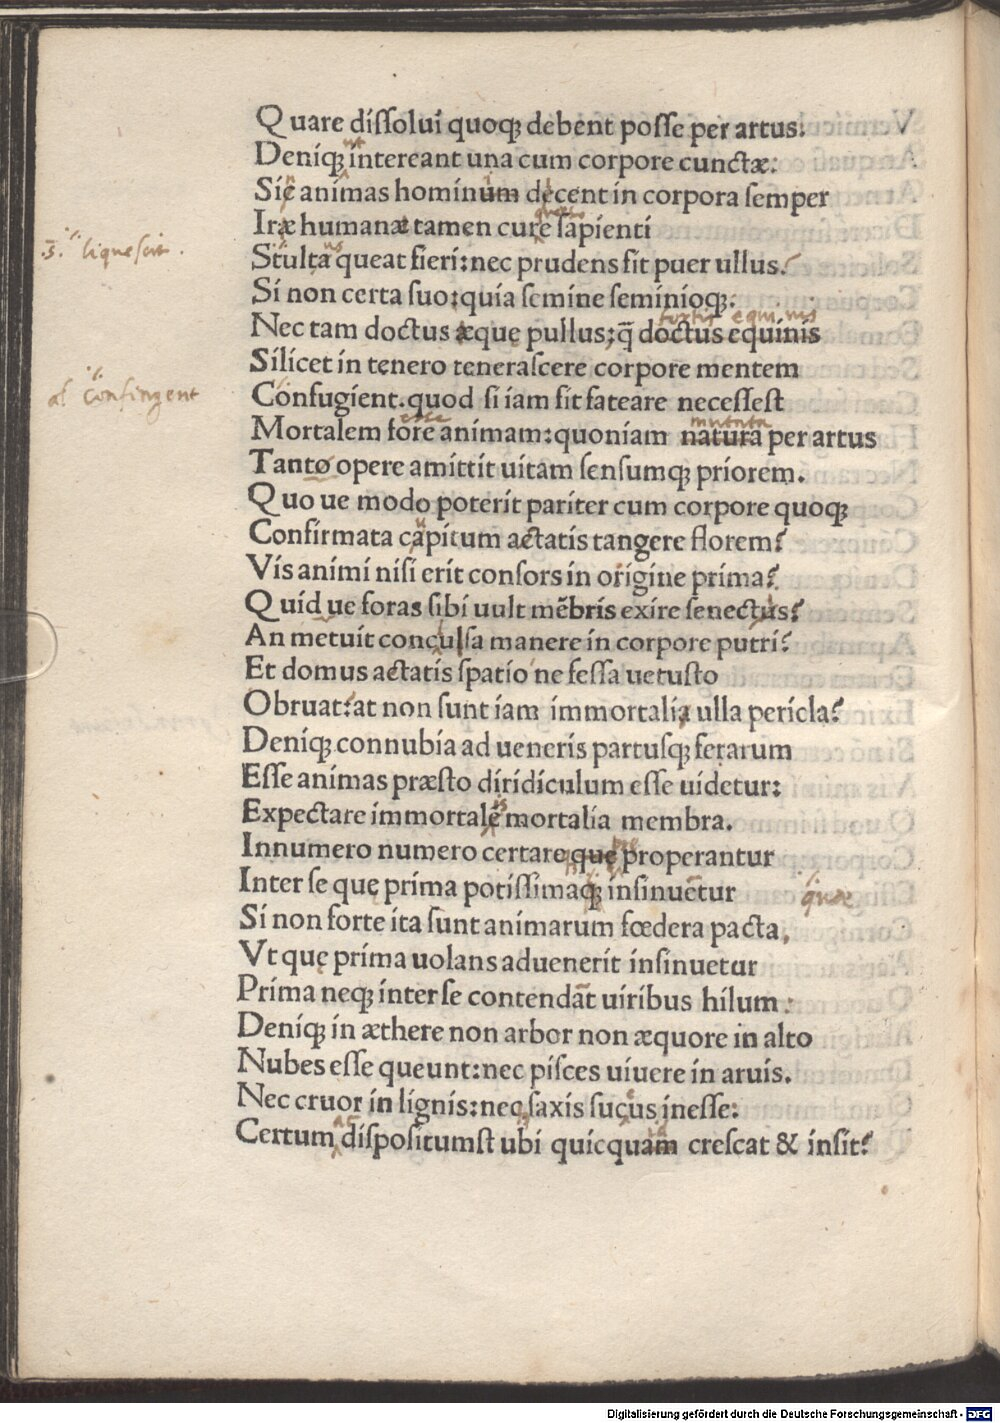 Quare dissolui quoq; debent posse per artus:
Deniq; intereant una cum corpore cunctæ:
Sic animas hominum decent in corpora semper
Iræ humanæ tamen cur e sapienti
.3. liquescit.
Stulta queat fieri: nec prudens sit puer ullus.
Si non certa suo: quia semine seminioq;.
fortis equi uis
Nec tam doctus æque pullus; q̄ doctus equinis
Silicet in tenero tenerascere corpore mentem
al confingent
Confugient. quod si iam sit fateare necessest
esse mutata
Mortalem fore animam: quoniam natura per artus
Tanto opere amittit uitam sensumq; priorem.
Quo ue modo poterit pariter cum corpore quoq;
Confirmata capitum aetatis tangere florem?
Vis animi nisi erit consors in origine prima?
Quid ue foras sibi uult mēbris exire senectus?
An metuit conculsa manere in corpore putri?
Et domus aetatis spatio ne fessa uetusto
Obruat: at non sunt iam immortalia ulla pericla?
Deniq; connubia ad ueneris partusq; ferarum
Esse animas præsto diridiculum esse uidetur:
Expectare immortale mortalia membra.
Innumero numero certare que properantur
Inter se quę prima potissimaq; insinuetur
quae
Si non forte ita sunt animarum fœdera pacta,
Vt quę prima uolans aduenerit insinuetur
Prima neq; inter se contendāt uiribus hilum:
Deniq; in æthere non arbor non æquore in alto
Nubes esse queunt: nec pisces uiuere in aruis.
Nec cruor in lignis: nec saxis sucus inesse:
Certum dispositumst ubi quicquam crescat & insit?
Digitalisierung gefördert durch die Deutsche Forschungsgemeinschaft - DFG